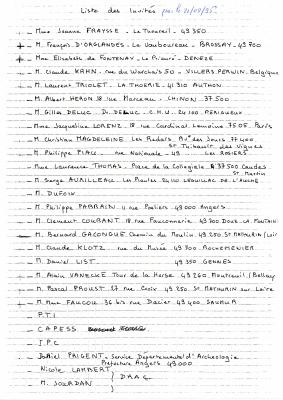 Liste des Invités
- Mme Jeanne FRAYSSE - Le Thoureil - 49350
+ M. François D'ORGLANDES - La Vauboureau - BROSSAY - 49700
+ Mme Elisabeth de FONTENAY - Le Prieuré - DENEZE
- M. Claude KAHN - rue du Warchais 50 - VILLERS PERWIN. Belgique
- M. Laurent TRIOLET - LA THOERIE - 41310 AUTHON
- M. Albert HERON 18 rue Marceau - CHINON - 37500
- M. Gilles DELUC - Dr. DELUC - C.H.U - 24100 PERIGUEUX
- Mme Jacqueline LORENZ - 18 rue Cardinal Lemoine 7505. Paris
- M. Christian MAGDELEINE Av. des Joncs 77400
St Thibault des Vignes
- M. Philippe rue Nationale - 49 - LES ROSIERS
- Mme Laurence THOMAS - Place de la Collegiale 37500 Candes
St Martin
- M. Serge AVRILLEAU - 24110 LEGUILLAC DE L'AUCHE
- M. DUFOIX
- M. Philippe PARRAIN 11 rue Pasliers 49000 Angers
- M. Clement COURANT 18 rue Fauconnerie 49700 DOUE LA FONTAINE
- M. Bernard GACONGUE Chemin du Moulin 49250 St MATHURIN/Loire
- M. Claude KLOTZ rue du Musée 49700 ROCHEMENIER
- M. Daniel LIST 49350 GENNES
- M. Alain VANECKE Tour de la Herse 49260 Montreuil / Bellay
- M. Pascal PROUST 27 rue Croix 49250 St MATHURIN sur Loire
+ M. Mme FAUCOU 36 bis rue Dacier 49400 SAUMUR
- P.T.I
- CAPESS
- I.P.C
- Joëlel PRIGENT - Service Départemental d'Archeologie
Préfecture Angers 49000
- Nicole LAMBERT
D.R.A.C
- M. JOURDAN